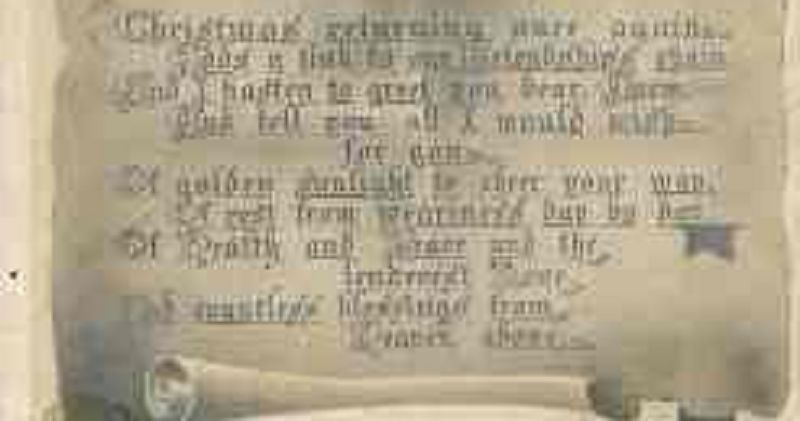 Christmas returning once again
Adds a link to our friendship's chain
And I hasten to greet you dear
And tell you all I would wish
for you
Of golden sunlight to cheer your way.
Of rest from weariness day by day
Of Health and Peace and the
tenderest
Of countless blessings from
Heaven above